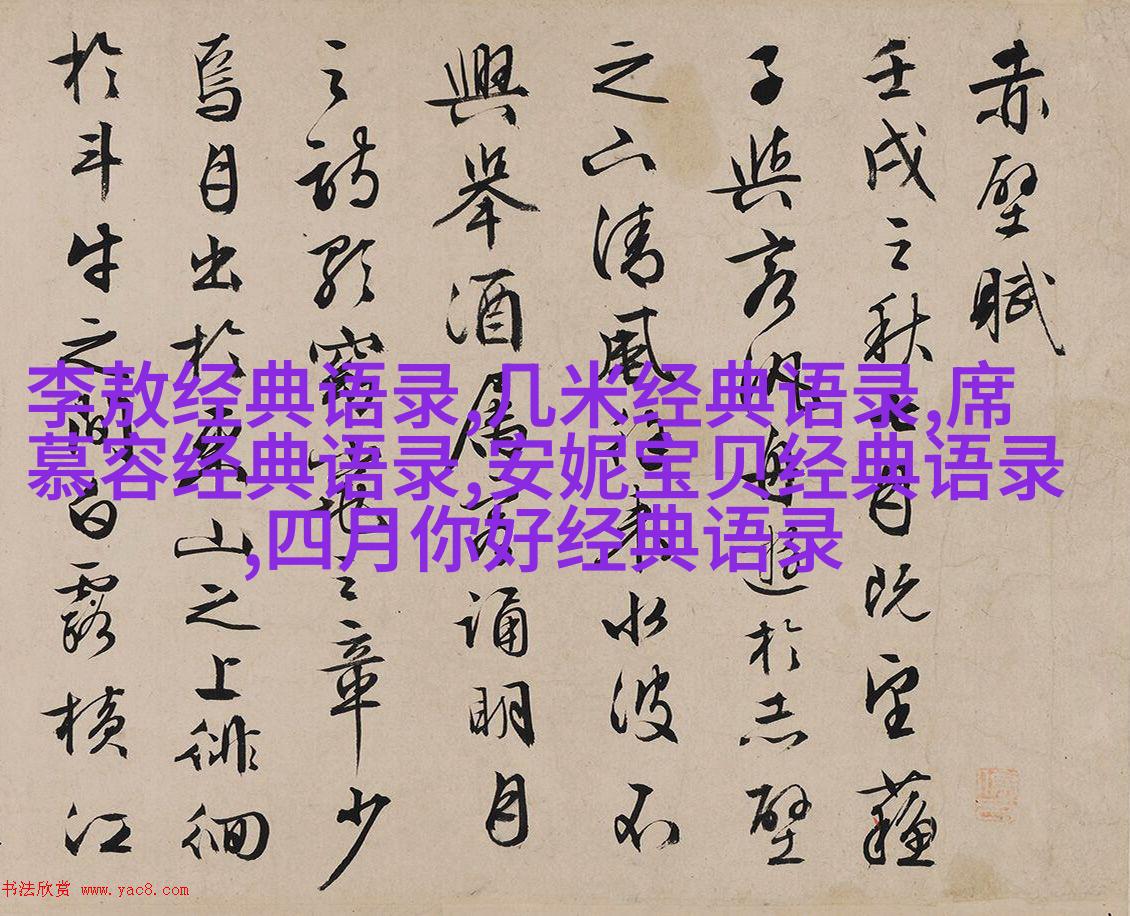 赤壁賦
壬戌之秋七月既望蘓
子與客遊於赤壁
之下清風徐來水波不
興舉酒屬客誦明月
之詩歌窈窕之章少
焉月出於東山之上徘徊
於斗牛之間白露橫江
李敖经典语录,几米经典语录,席
慕容经典语录,安妮宝贝经典语录
,四月你好经典语录
书法欣赏 www.yac8.com